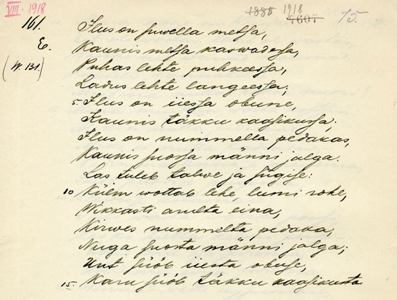 VIII. 1918
1885 1918
4607
15.
161.
E.
(N. 131.)
Ilus on suwella metsa,
Kaunis metsa kaswadessa,
Puhas lehte puhkeessa,
Ladus lehte langeessa,
5 Ilus on üessa obune,
Kaunis täkku kaasikussa;
Ilus on nummella pedakas,
Kaunis soossa männi jalga.
Las tuleb talwe ja sügise:
10 Külm wottab lehe, lumi rohe,
Wikkasti arulta eina,
Kirwes nummelta pedaka,
Nuga soosta männi jalga;
Unt sööb üesta obuse,
15. Karu sööb täkku kaasikusta